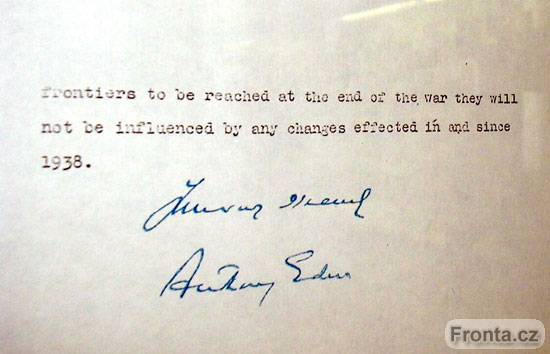 frontiers to be reached at the end of the war they will
not be influenced by any changes effected in and since
1938.
Anthony Eden
Fronta.cz